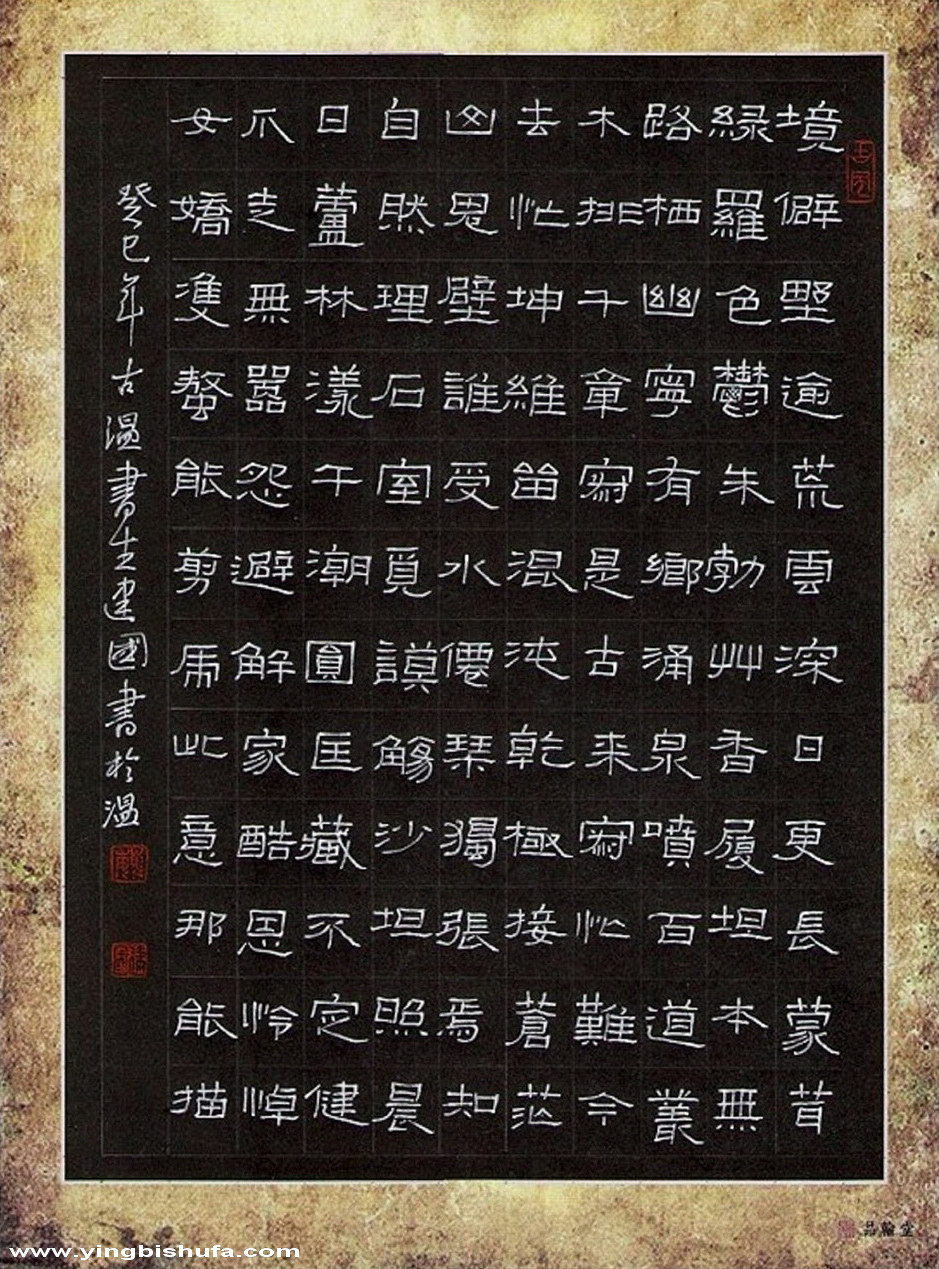 境僻野逾荒雲深日更長蒙茸
緑羅色鬱朱勃艸香履坦本無
路栖幽寧有鄉涌泉噴百道叢
木排千章窮是古来窮心難今
去忙坤維笛混沌乾極接蒼茫
凶思壁誰受水僊琴獨張焉知
自然理石室覓謨觴沙坦照晨
日蘆林漾午潮圓匡藏不定健
爪走無囂怨避解家酷恩怜悼
女嬌隻螯能剪馬此意那能描
癸巳年古溫書生建國書於溫
品翰堂
www.yingbishufa.com